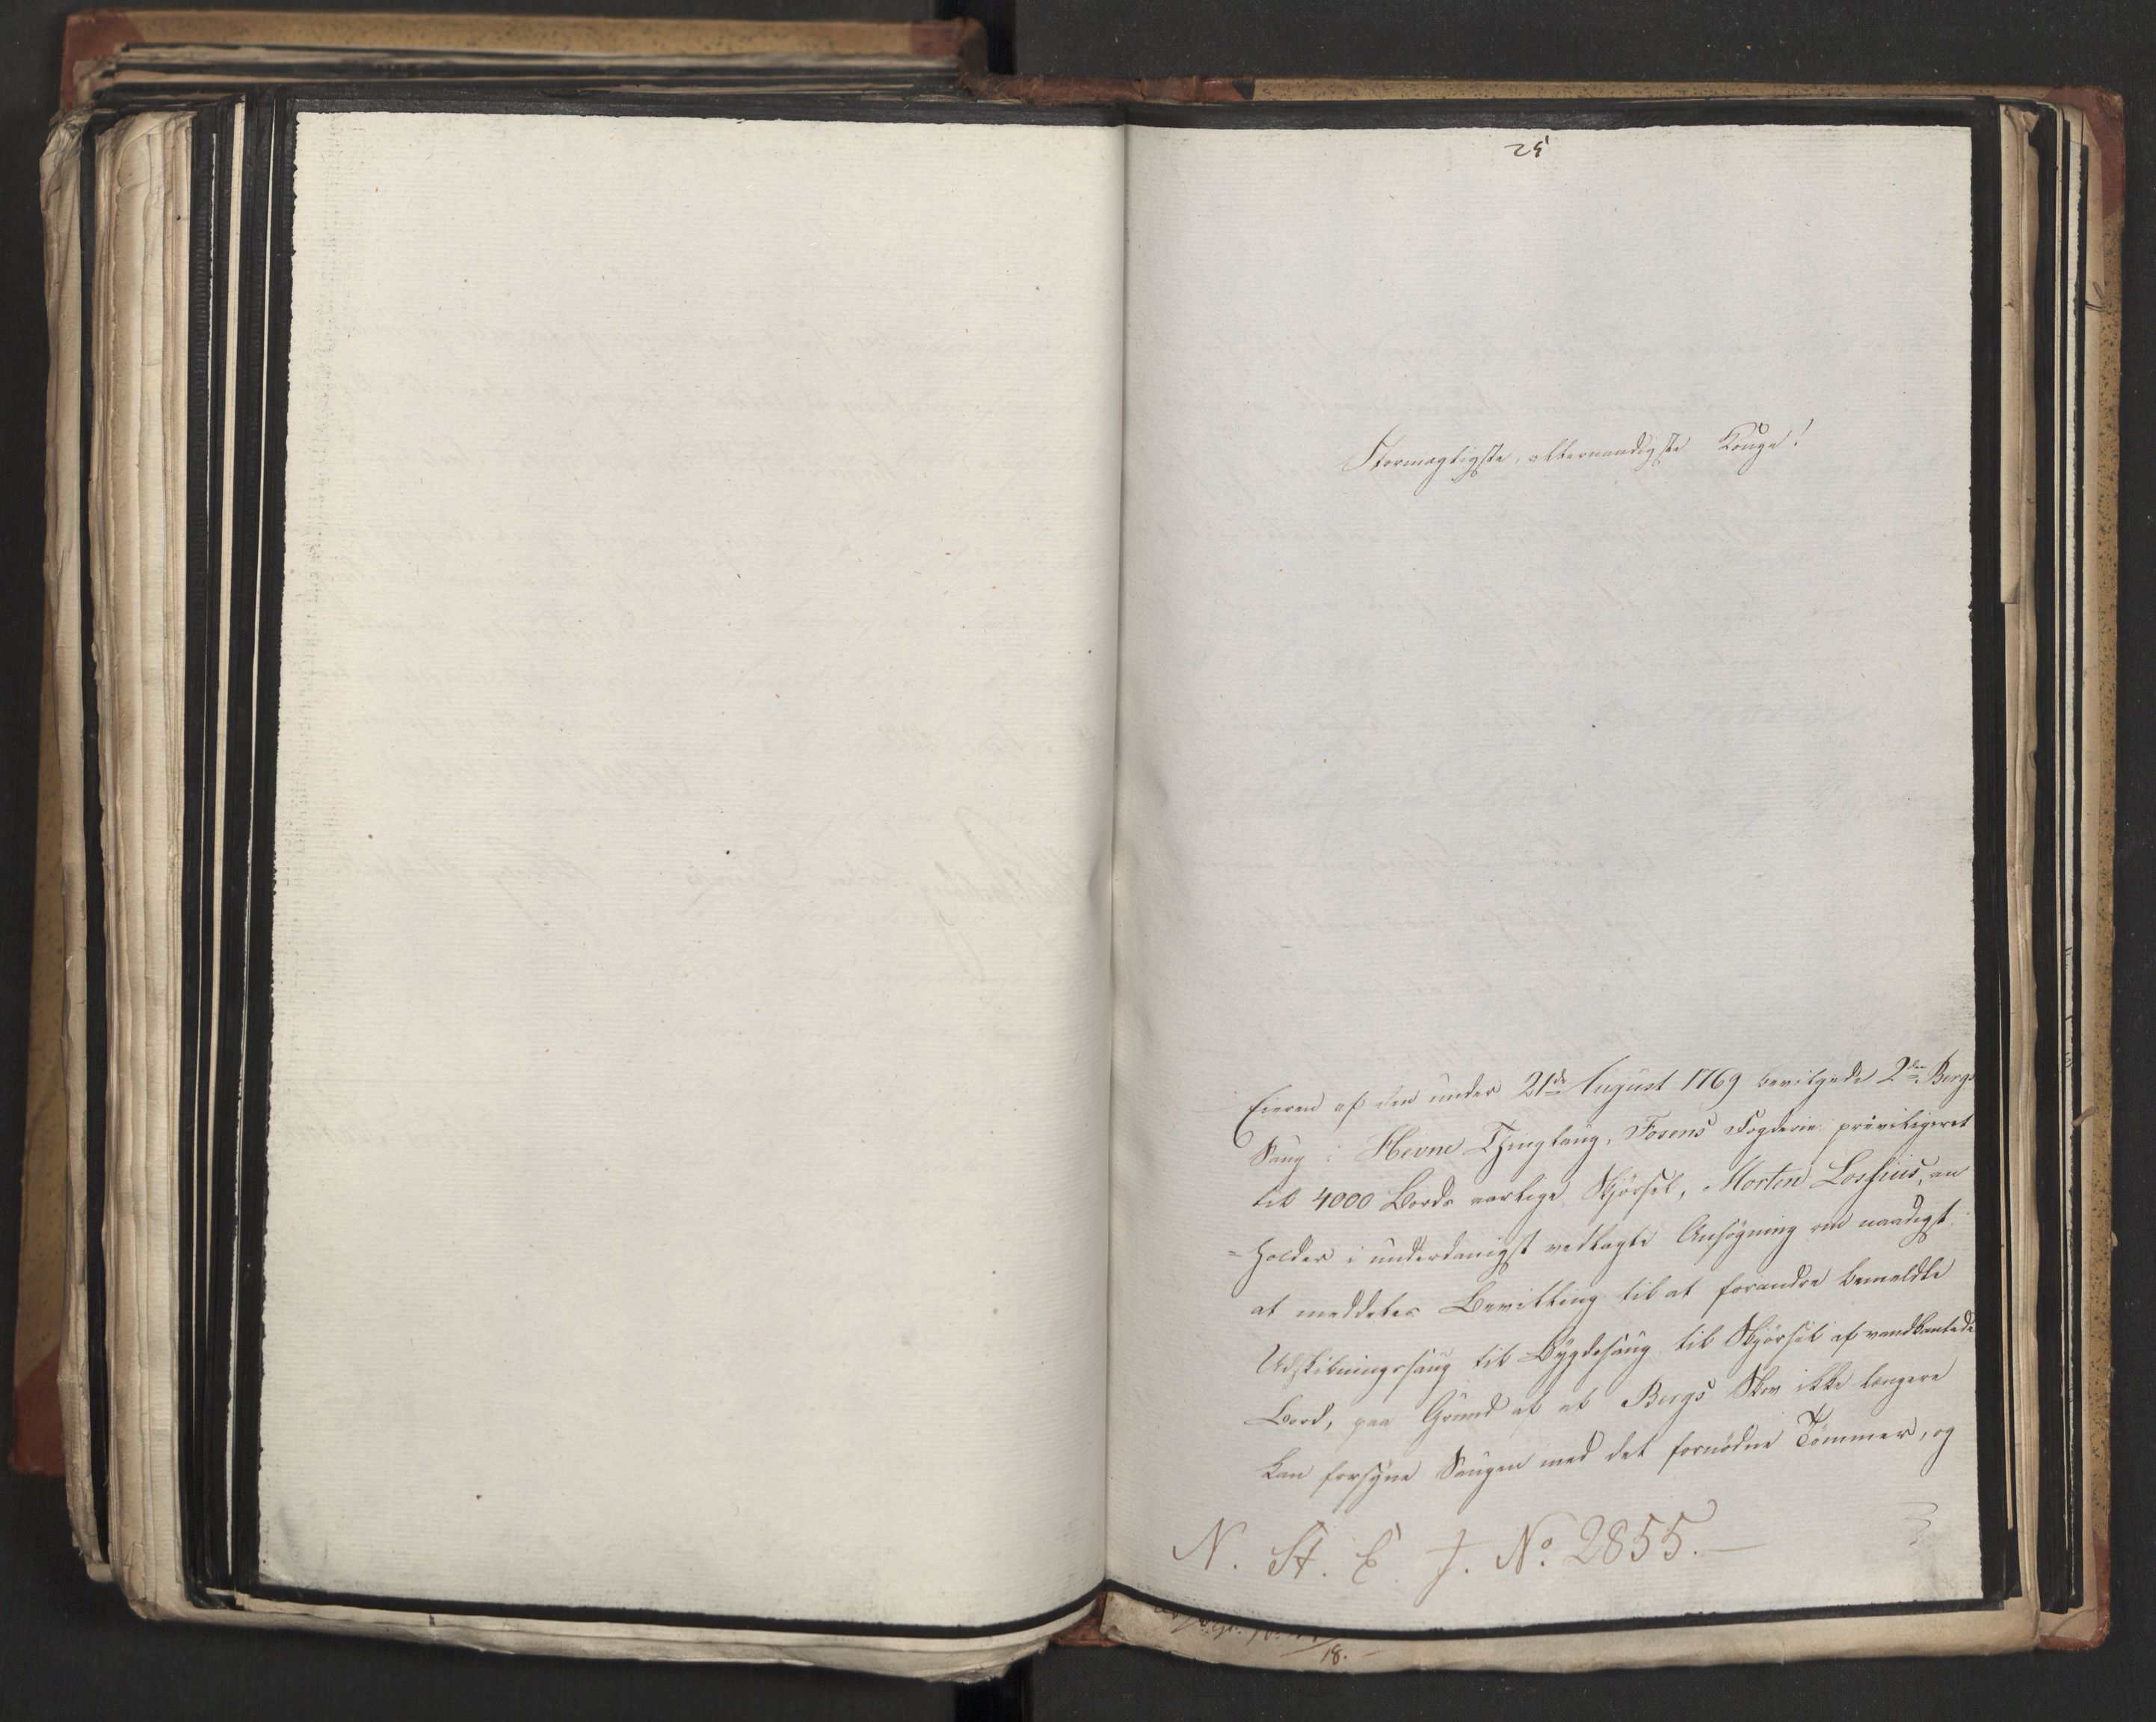 25
Stormægtigste, allernaadigste Konge!
Eieren af den under 21de August 1769 bevilgede 2den Bergs
Saug i Hevne Thinglaug, Fosens Fogderie priviligeret
til 4000 Bords aarlige Skjørsel, Morten Lossius, an
=holder i underdanigst vedlagte Ansøgning om naadigst
at meddeles Bevilling til at forandre bemeldte
Udskibningssaug til Bygdesaug til Skjørsel af vandkantede
Bord, paa Grund af at Bergs Skov ikke længere
kan forsyne Saugen med det fornødne Tømmer, og
N. St. E. J. No. 2855.—
18.